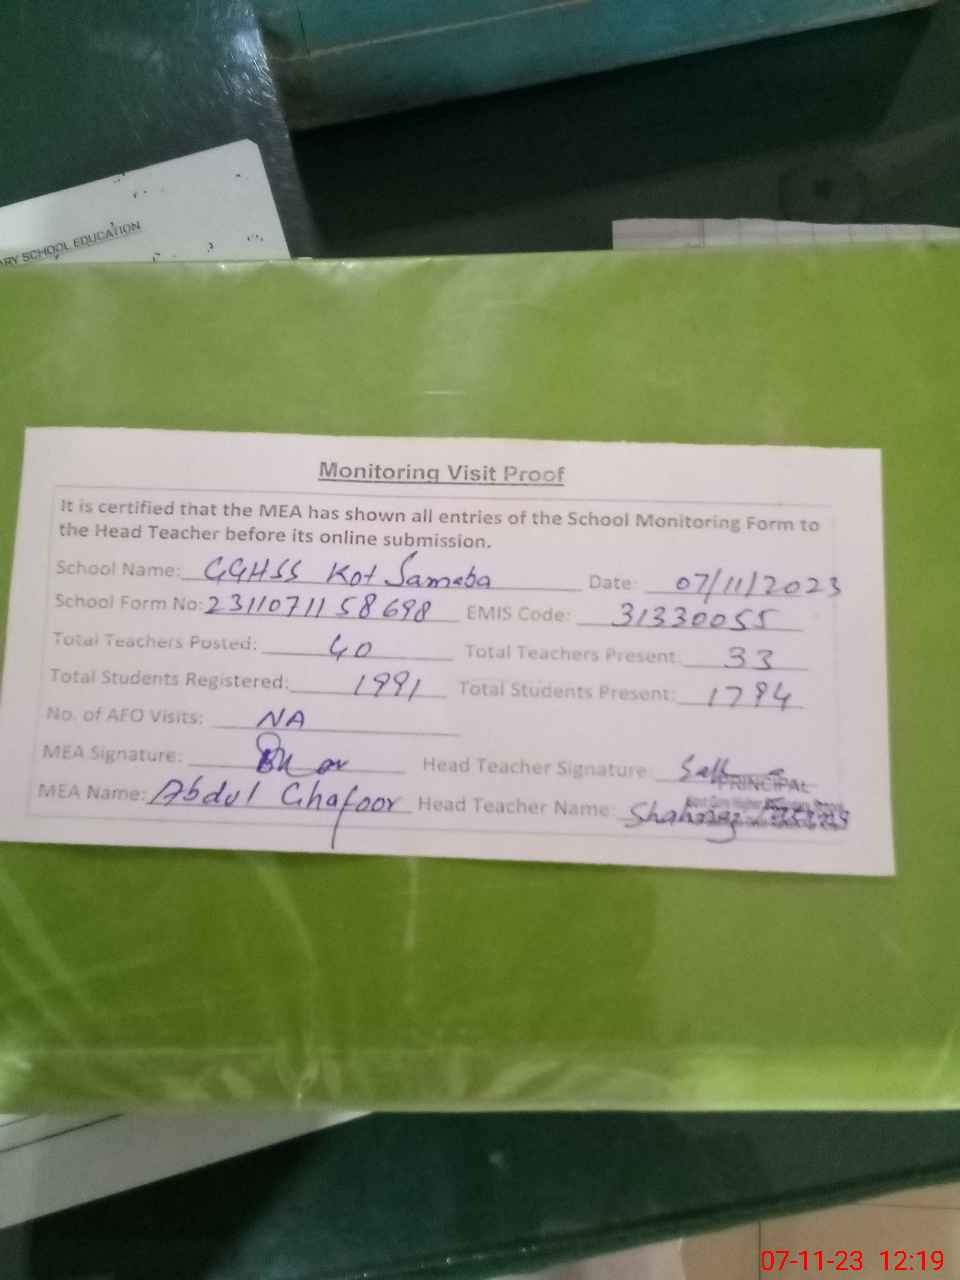 ARY SCHOOL EDUCATION
Monitoring Visit Proof
It is certified that the MEA has shown all entries of the School Monitoring Form to
the Head Teacher before its online submission.
School Name: GGHSS Kot Sameba Date: 07/11/2023
School Form No: 23110711 58698 EMIS Code: 31330055
Total Teachers Posted: 40 Total Teachers Present: 33
Total Students Registered: 1991 Total Students Present: 1794
No. of AEO Visits: NA
MEA Signature: Head Teacher Signature:
PRINCIPAL
MEA Name: Abdul Ghafoor Head Teacher Name: Shahnaz
07-11-23 12:19